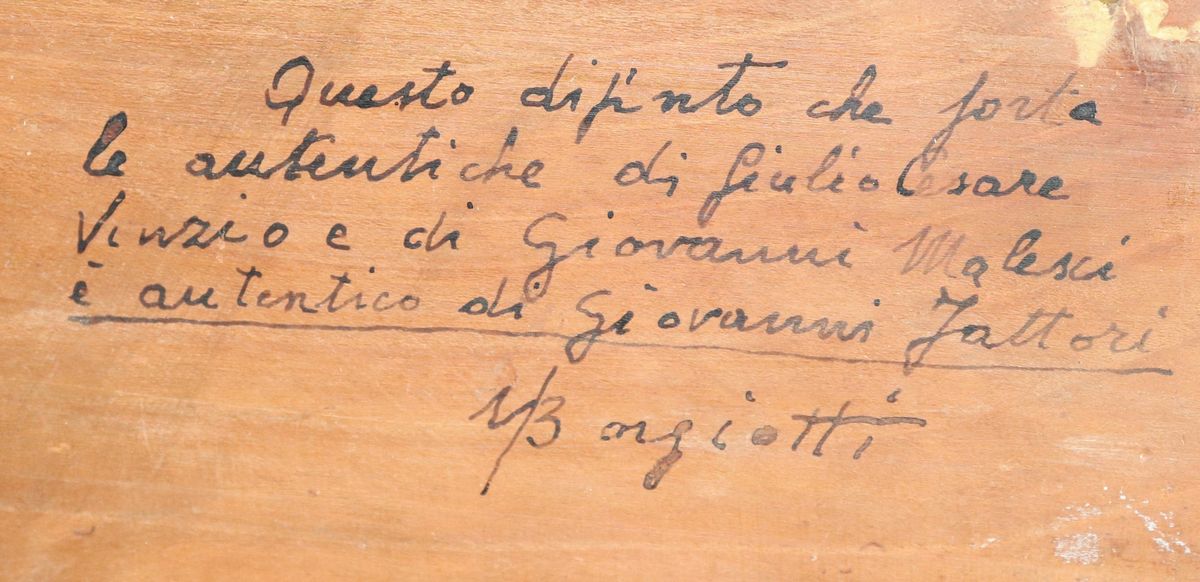 Questo dipinto che porta
le autentiche di Giulio Cesare
Vinzio e di Giovanni Malesci
è autentico di Giovanni Fattori